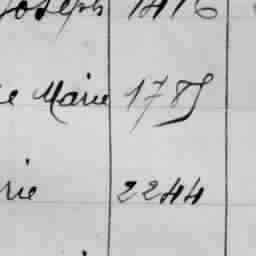 Joseph 1416
e Marie 1785
rie 2244